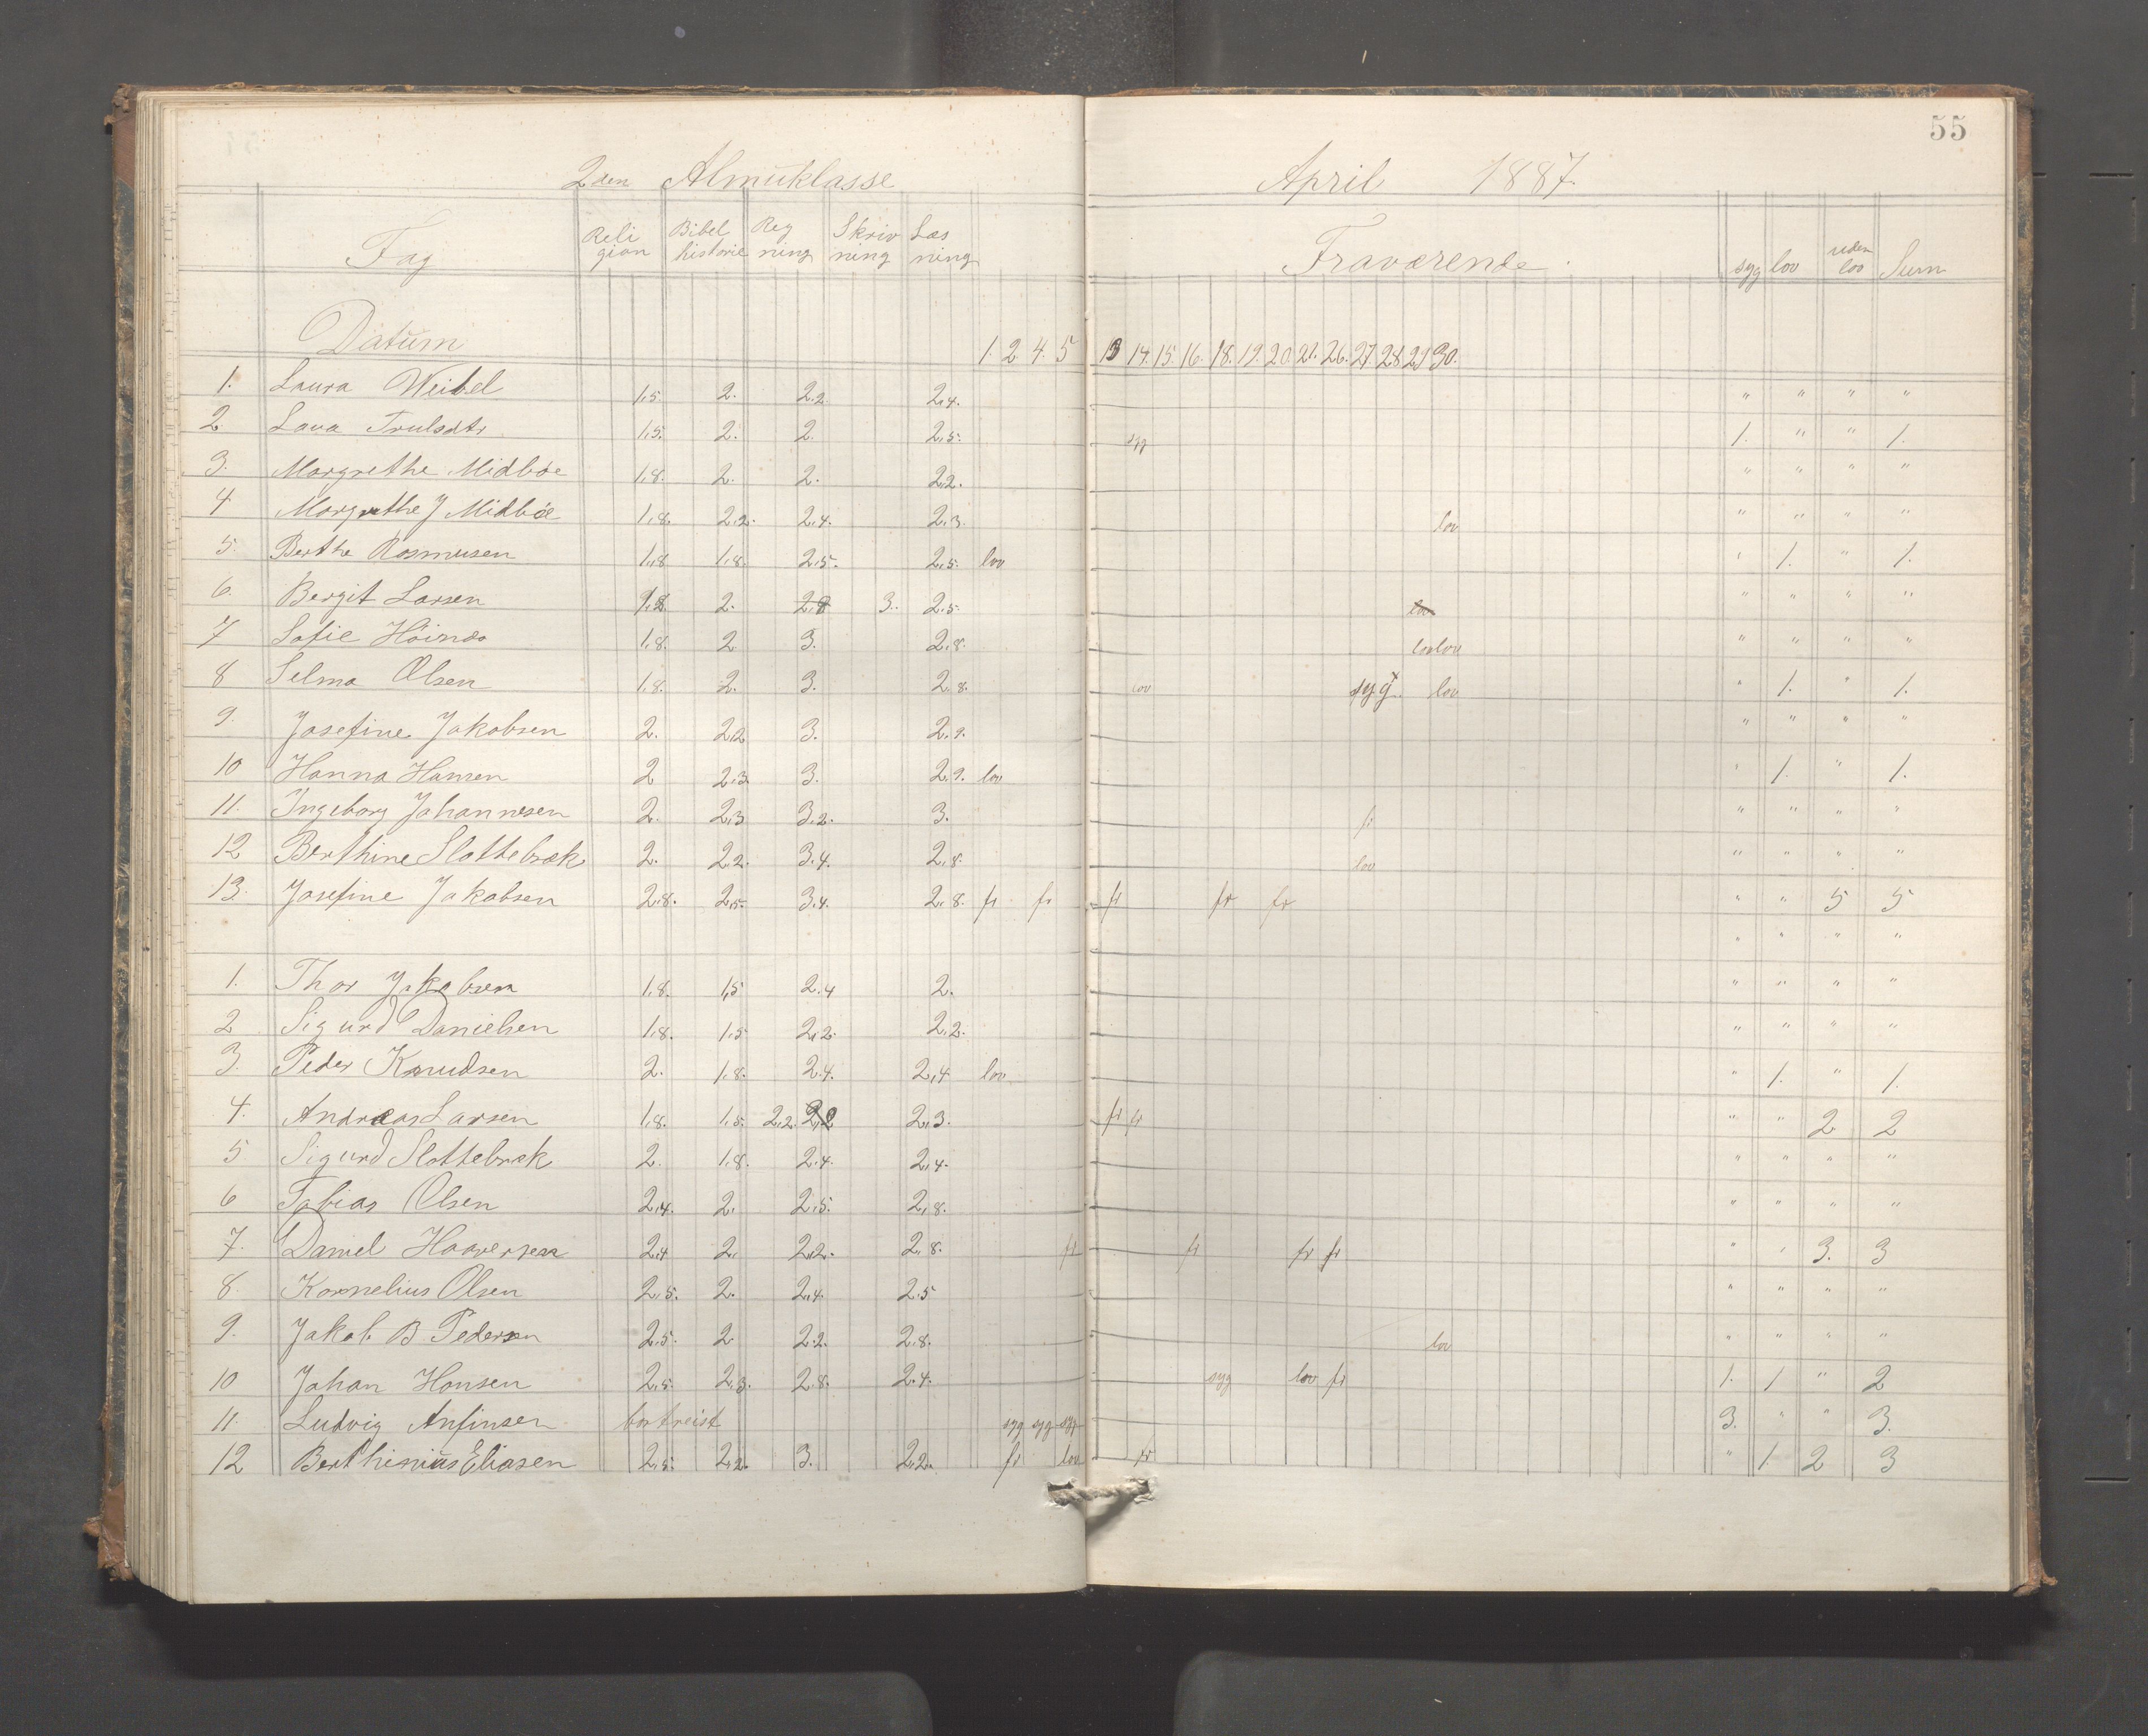 55
2den Almuklasse April 1887.
Fag Religion Bibelhistorie Regning Skrivning Læsning Fraværende. syg lov uden lov Sum
Datum 1. 2 4. 5 13 14. 15. 16. 18. 19. 20. 21. 26. 27. 28 29 30.
1. Laura Weibel 1,5. 2. 2.2. 2,4. " " " "
2 Lava Trulsdtr 1,5. 2. 2. 2,5. syg 1. " " 1.
3. Margrethe Midböe 1,8. 2. 2. 2,2. " " " "
4 Margrethe J Midböe 1,8. 2,2. 2,4. 2,3. lov " " " "
5. Berthe Rasmusen 1,8 1,8. 2,5. 2,5. lov " 1. " 1.
6. Bergit Larsen 1,8 2. 2,8 3. 2,5. lov " " " "
7 Sofie Höinæs 1,8. 2 3. 2,8. lov lov " " " "
8 Selma Olsen 1,8. 2. 3. 2,8. lov syg lov " 1. " 1.
9. Josefine Jakobsen 2. 2,2 3. 2,9. " " " "
10 Hanna Hansen 2 2,3. 3. 2,9. lov " 1. " 1.
11. Ingeborg Johannesen 2. 2,3 3.2. 3. fr " " " "
12 Berthine Slottebræk 2. 2,2. 3.4. 2,8. lov " " " "
13. Josefine Jakobsen 2,8. 2,5. 3.4. 2,8. fr fr fr fr fr " " 5 5
" " " "
1. Thor Jakobsen 1,8. 1,5 2.4 2. " " " "
2 Sigurd Danielsen 1,8. 1,5 2,2. 2,2. " " " "
3. Peder Knudsen 2. 1,8. 2.4. 2,4 lov " 1. " 1.
4. Andreas Larsen 1,8. 1,5. 2,2. 2,2 2,3. fr fr " " 2 2
5 Sigurd Slottebræk 2. 1,8. 2.4. 2,4. " " " "
6 Tobias Olsen 2,4. 2. 2,5. 2,8. " " " "
7. Daniel Haaversen 2,4 2. 2,2. 2,8. fr fr fr fr " " 3. 3
8. Kornelius Olsen 2,5. 2. 2,4. 2.5 " " " "
9. Jakob B. Pedersen 2.5. 2 2.2. 2,8. lov " " " "
10 Johan Hansen 2,5. 2,3. 2.8. 2.4. syg lov fr 1. 1 " 2
11. Ludvig Anfinsen bortreist syg syg syg 3. " " 3.
12 Berthinius Eliasen 2,5. 2,2. 3. 2,2. fr lov fr " 1 2 3